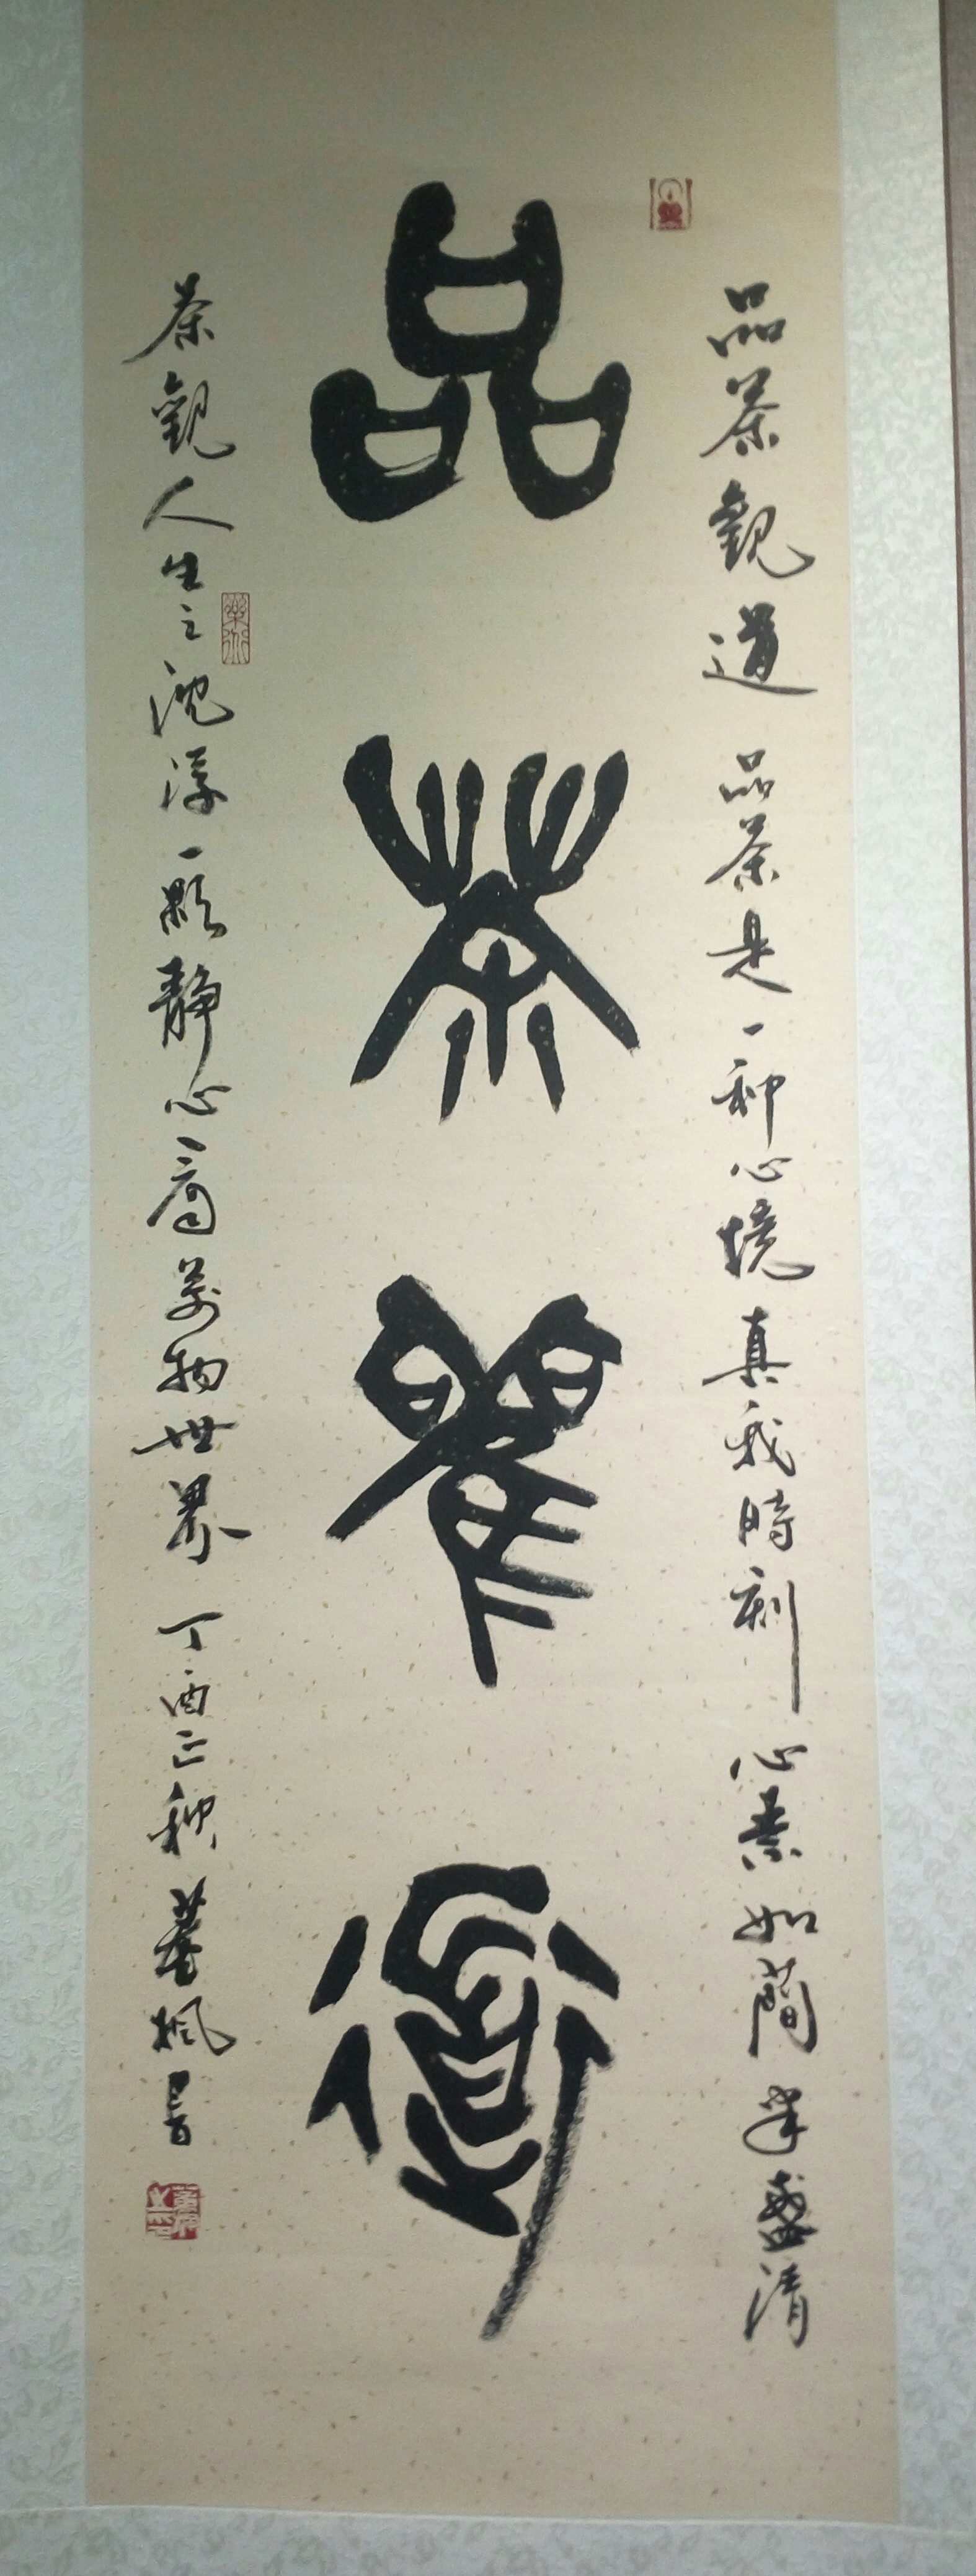 品茶觀道 品茶是一种心境真我時刻 心素如蕳 半盞清
品茶觀道
茶觀人生之沈浮一顆靜心看萬物世界 丁酉正秋